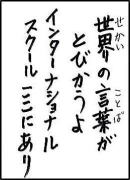 世界の言葉が
とびかうよ
インターナショナル
スクールここにあり